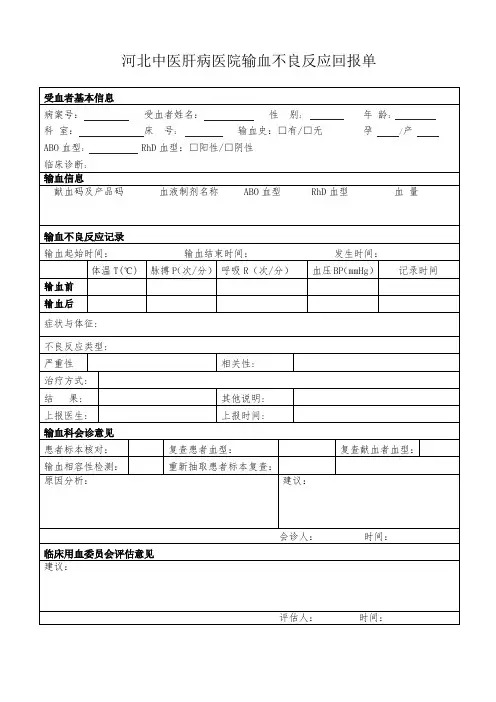 河北中医肝病医院输血不良反应回报单
受血者基本信息
病案号： 受血者姓名： 性 别： 年 龄：
科 室： 床 号： 输血史：□有/□无 孕 /产
ABO血型： RhD血型：□阳性/□阴性
临床诊断：
输血信息
献血码及产品码 血液制剂名称 ABO血型 RhD血型 血 量
输血不良反应记录
输血起始时间： 输血结束时间： 发生时间：
体温T(℃) 脉搏P(次/分) 呼吸R（次/分） 血压BP(mmHg) 记录时间
输血前
输血后
症状与体征：
不良反应类型：
严重性 相关性：
治疗方式：
结 果： 其他说明：
上报医生： 上报时间：
输血科会诊意见
患者标本核对： 复查患者血型： 复查献血者血型：
输血相容性检测： 重新抽取患者标本复查：
原因分析： 建议：
会诊人： 时间：
临床用血委员会评估意见
建议：
评估人： 时间：